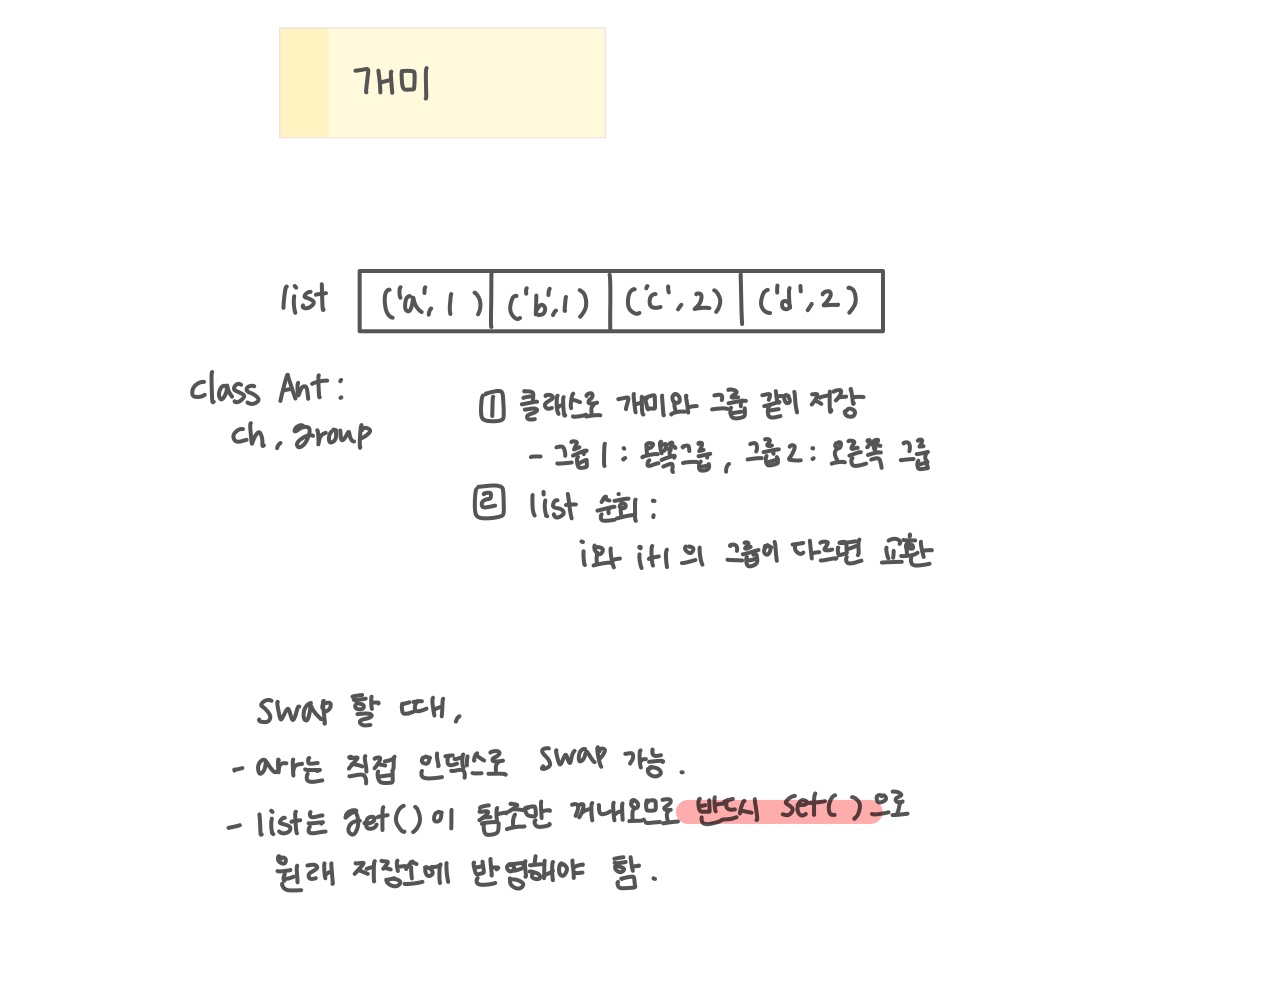 개미
list ('a', 1) ('b',1) ('c', 2) ('d', 2)
class Ant:
ch, group
1 클래스로 개미와 그룹 같이 저장
- 그룹1: 왼쪽그룹, 그룹2: 오른쪽 그룹
2 list 순회:
i와 i+1의 그룹이 다르면 교환
swap 할 때,
- arr는 직접 인덱스로 swap 가능.
- list는 get()이 참조만 꺼내오므로 반드시 set()으로
원래 저장소에 반영해야 함.